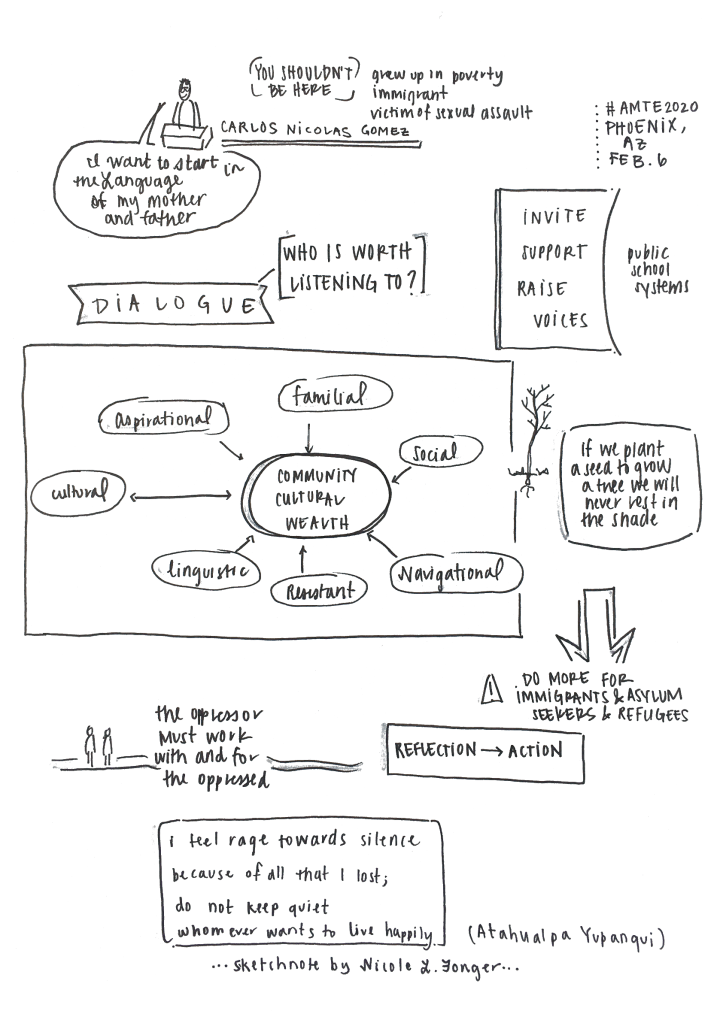 YOU SHOULDN'T
BE HERE
grew up in poverty
immigrant
victim of sexual assault
CARLOS NICOLAS GOMEZ
#AMTE2020
PHOENIX,
AZ
FEB. 6
I want to start in
the language
of my mother
and father
INVITE
SUPPORT
RAISE
VOICES
public
school
systems
WHO IS WORTH
LISTENING TO?
DIALOGUE
familial
aspirational
social
cultural
COMMUNITY
CULTURAL
WEALTH
linguistic
Resistant
Navigational
If we plant
a seed to grow
a tree we will
never rest in
the shade
! DO MORE FOR
IMMIGRANTS & ASYLUM
SEEKERS & REFUGEES
the oppressor
must work
with and for
the oppressed
REFLECTION → ACTION
i feel rage towards silence
because of all that I lost;
do not keep quiet
whomever wants to live happily
(Atahualpa Yupanqui)
...sketchnote by Nicole L. Fonger...